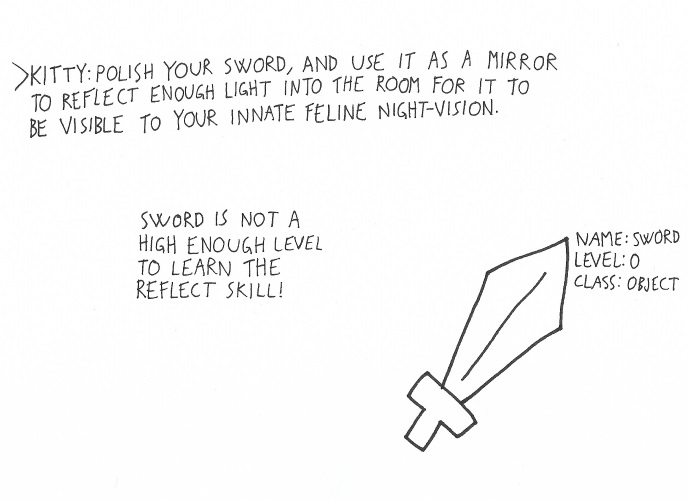 >KITTY: POLISH YOUR SWORD, AND USE IT AS A MIRROR
TO REFLECT ENOUGH LIGHT INTO THE ROOM FOR IT TO
BE VISIBLE TO YOUR INNATE FELINE NIGHT-VISION.
SWORD IS NOT A
HIGH ENOUGH LEVEL
TO LEARN THE
REFLECT SKILL!
NAME: SWORD
LEVEL: 0
CLASS: OBJECT